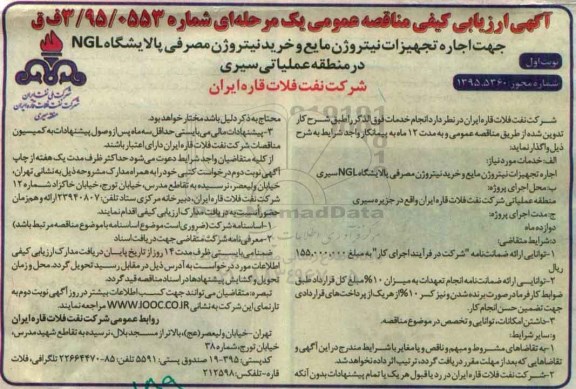 آگهی ارزیابی کیفی مناقصه عمومی یک مرحله‌ای شماره ۳/۹۵/۰۵۵۳/ف ق
جهت اجاره تجهیزات نیتروژن مایع و خرید نیتروژن مصرفی پالایشگاه NGL
در منطقه عملیاتی سیری
شرکت نفت فلات قاره ایران
نوبت اول
شماره مجوز: ۱۳۹۵.۵۳۶۰
شرکت ملی نفت ایران
شرکت نفت فلات قاره ایران
منطقه سیری
شرکت نفت فلات قاره ایران در نظر دارد انجام خدمات فوق‌الذکر را طبق شرح کار
تدوین شده از طریق مناقصه عمومی و به مدت ۱۲ ماه به پیمانکار واجد شرایط به شرح
ذیل واگذار نماید:
الف: خدمات مورد نیاز:
اجاره تجهیزات نیتروژن مایع و خرید نیتروژن مصرفی پالایشگاه NGL سیری
ب: محل اجرای پروژه:
منطقه عملیاتی شرکت نفت فلات قاره ایران واقع در جزیره سیری
ج: مدت اجرای پروژه:
دوازده ماه
د: شرایط متقاضی:
۱-توانایی ارائه ضمانت‌نامه "شرکت در فرآیند ارجاع کار" به مبلغ ۱۵۵.۰۰۰.۰۰۰
ریال
۲-توانایی ارائه ضمانت‌نامه انجام تعهدات به میزان ۱۰% مبلغ کل قرارداد طبق
ضوابط کارفرما در صورت برنده شدن و نیز کسر ۱۰% از هر یک از پرداخت‌های قراردادی
جهت تضمین حسن انجام کار.
۳-داشتن امکانات، توانایی و تخصص در موضوع مناقصه.
و: سایر شرایط:
۱-به تقاضاهای مشروط و مبهم و ناقص و یا مغایر با شرایط مندرج در این آگهی و
تقاضاهایی که بعد از مهلت مقرر دریافت گردد، ترتیب اثر داده نخواهد شد.
۲-شرکت نفت فلات قاره ایران در رد یا قبول هر یک یا تمام پیشنهادات بدون آنکه
محتاج به ذکر دلیل باشد مختار خواهد بود.
۳-پیشنهادات مالی می‌بایستی حداقل سه ماه پس از وصول پیشنهادات به کمیسیون
مناقصات شرکت نفت فلات قاره ایران دارای اعتبار باشند.
از کلیه متقاضیان واجد شرایط دعوت می‌شود حداکثر ظرف مدت یک هفته از چاپ
آگهی نوبت دوم درخواست کتبی خود را به همراه مدارک مشروحه ذیل به نشانی تهران،
خیابان ولیعصر، نرسیده به تقاطع مدرس، خیابان تورج، خیابان خاکزاد شماره ۱۲
شرکت نفت فلات قاره ایران، دبیرخانه مرکزی ستاد تلفن: ۲۳۹۴۰۸۰۷ ارائه و همزمان
حضوراً نسبت به دریافت مدارک ارزیابی کیفی اقدام نمایند.
۱-اساسنامه شرکت (ضروری است موضوع اساسنامه با موضوع مناقصه مرتبط باشد)
۲-معرفی‌نامه شرکت متقاضی جهت دریافت اسناد
ضمناً می‌بایستی ظرف مدت ۱۴ روز از تاریخ پایان دریافت مدارک ارزیابی کیفی
اطلاعات مورد درخواست به آدرس ذیل در مقابل رسید تحویل گردد. محل و زمان
تحویل و گشایش پیشنهادها در اسناد مناقصه قید گردد
تبصره: متقاضیان می‌توانند جهت کسب اطلاعات بیشتر در روز آگهی نوبت دوم به
تارنمای این شرکت به نشانی WWW.IOOC.CO.IR مراجعه نمایند.
روابط عمومی شرکت نفت فلات قاره ایران
تهران-خیابان ولیعصر (عج)، بالاتر از مسجد بلال، نرسیده به تقاطع شهید مدرس،
خیابان تورج، شماره ۳۸
کدپستی: ۱۹۳۹۵ صندوق پستی: ۵۵۹۱ تلفن: ۸۵-۲۲۶۶۴۴۷۰ تلگرافی: فلات
قاره-تلفکس: ۲۱۲۵۹۸